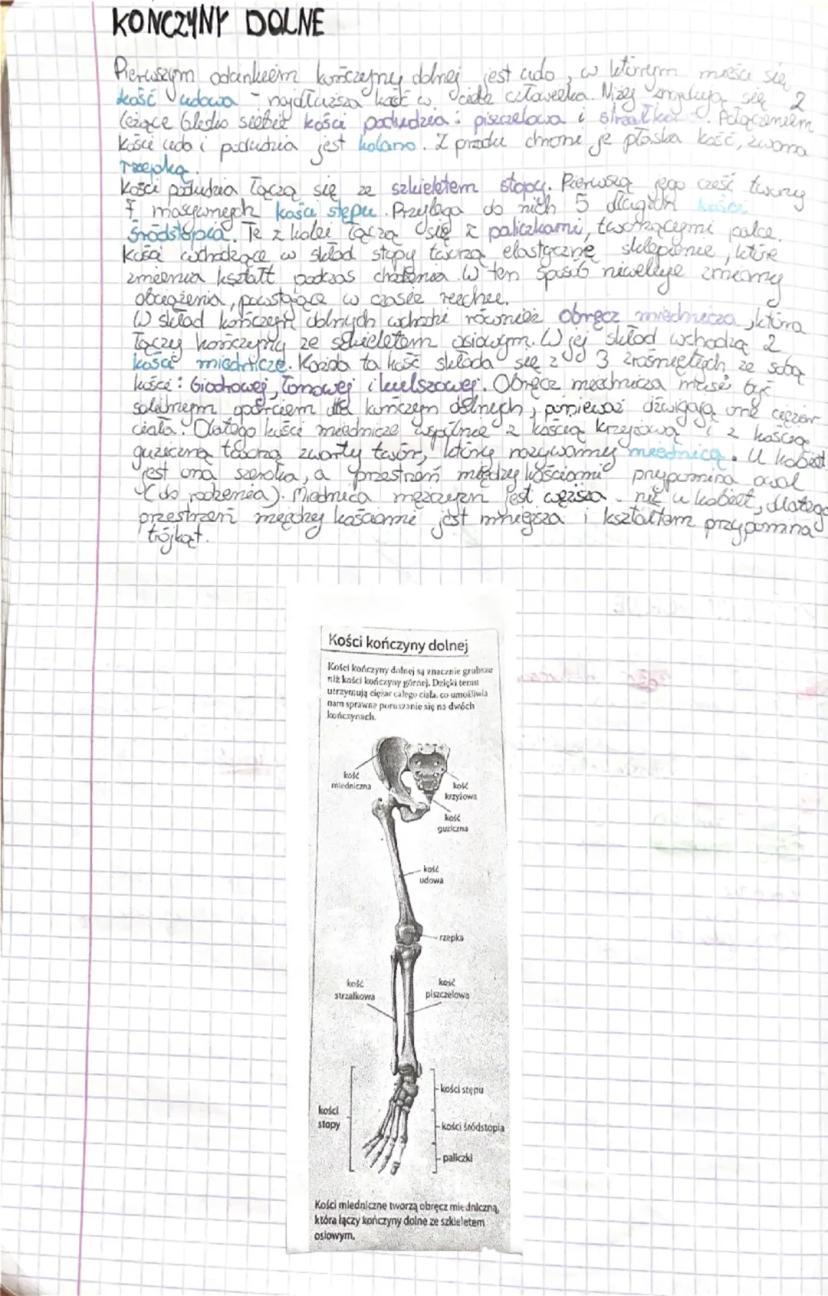 KOŃCZYNY DOLNE
Pierwszym odcinkiem kończyny dolnej jest udo, w którym mieści się
kość udowa - najdłuższa kość w ciele człowieka. Niżej znajdują się 2
leżące blisko siebie kości podudzia: piszczelowa i strzałkowa. Połączeniem
kości uda i podudzia jest kolano. Z przodu chroni je płaska kość, zwana
rzepką.
Kości podudzia łączą się ze szkieletem stopy. Pierwszą jego część tworzy
7 masywnych kości stępu. Przylega do nich 5 długich kości
śródstopia. Te z kolei łączą się z paliczkami, tworzącymi palce.
Kości wchodzące w skład stopy tworzą elastyczne sklepienie, które
zmienia kształt podczas chodzenia. W ten sposób niweluje zmiany
obciążenia, powstające w czasie ruchu.
W skład kończyn dolnych wchodzi również obręcz miednicza, która
łączy kończyny ze szkieletem osiowym. W jej skład wchodzą 2
kości miednicze. Każda ta kość składa się z 3 zrośniętych ze sobą
kości: biodrowej, łonowej i kulszowej. Obręcz miednicza musi być
solidnym oparciem dla kończyn dolnych, ponieważ dźwigają one ciężar
ciała. Dlatego kości miednicze wspólnie z kością krzyżową i z kością
guziczną tworzą zwarty twór, który nazywamy miednicą. U kobiet
jest ona szeroka, a przestrzeń między kościami przypomina owal
(do rodzenia). Miednica mężczyzn jest węższa niż u kobiet, dlatego
przestrzeń między kościami jest mniejsza i kształtem przypomina
trójkąt.
Kości kończyny dolnej
Kości kończyny dolnej są znacznie grubsze
niż kości kończyny górnej. Dzięki temu
utrzymują ciężar całego ciała, co umożliwia
nam sprawne poruszanie się na dwóch
kończynach.
kość
miedniczna
kość
krzyżowa
kość
guziczna
kość
udowa
rzepka
kość
strzałkowa
kość
piszczelowa
kości
stopy
kości stępu
kości śródstopia
paliczki
Kości miedniczne tworzą obręcz miedniczną,
która łączy kończyny dolne ze szkieletem
osiowym.